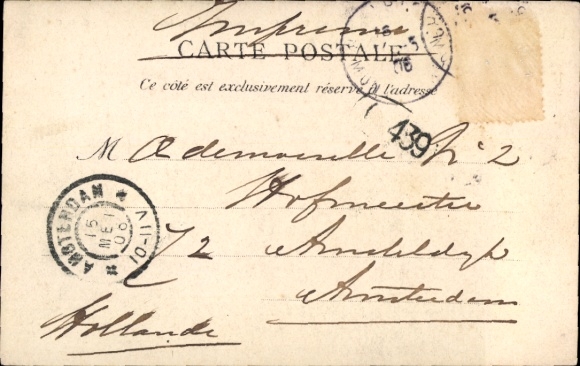 Imprimé
CARTE POSTALE
Ce côté est exclusivement réservé à l'adresse
439
Mademoiselle
Hofmeester
72 Amsteldijk
Amsterdam
Hollande
AMSTERDAM
15 MEI 06
10-11V